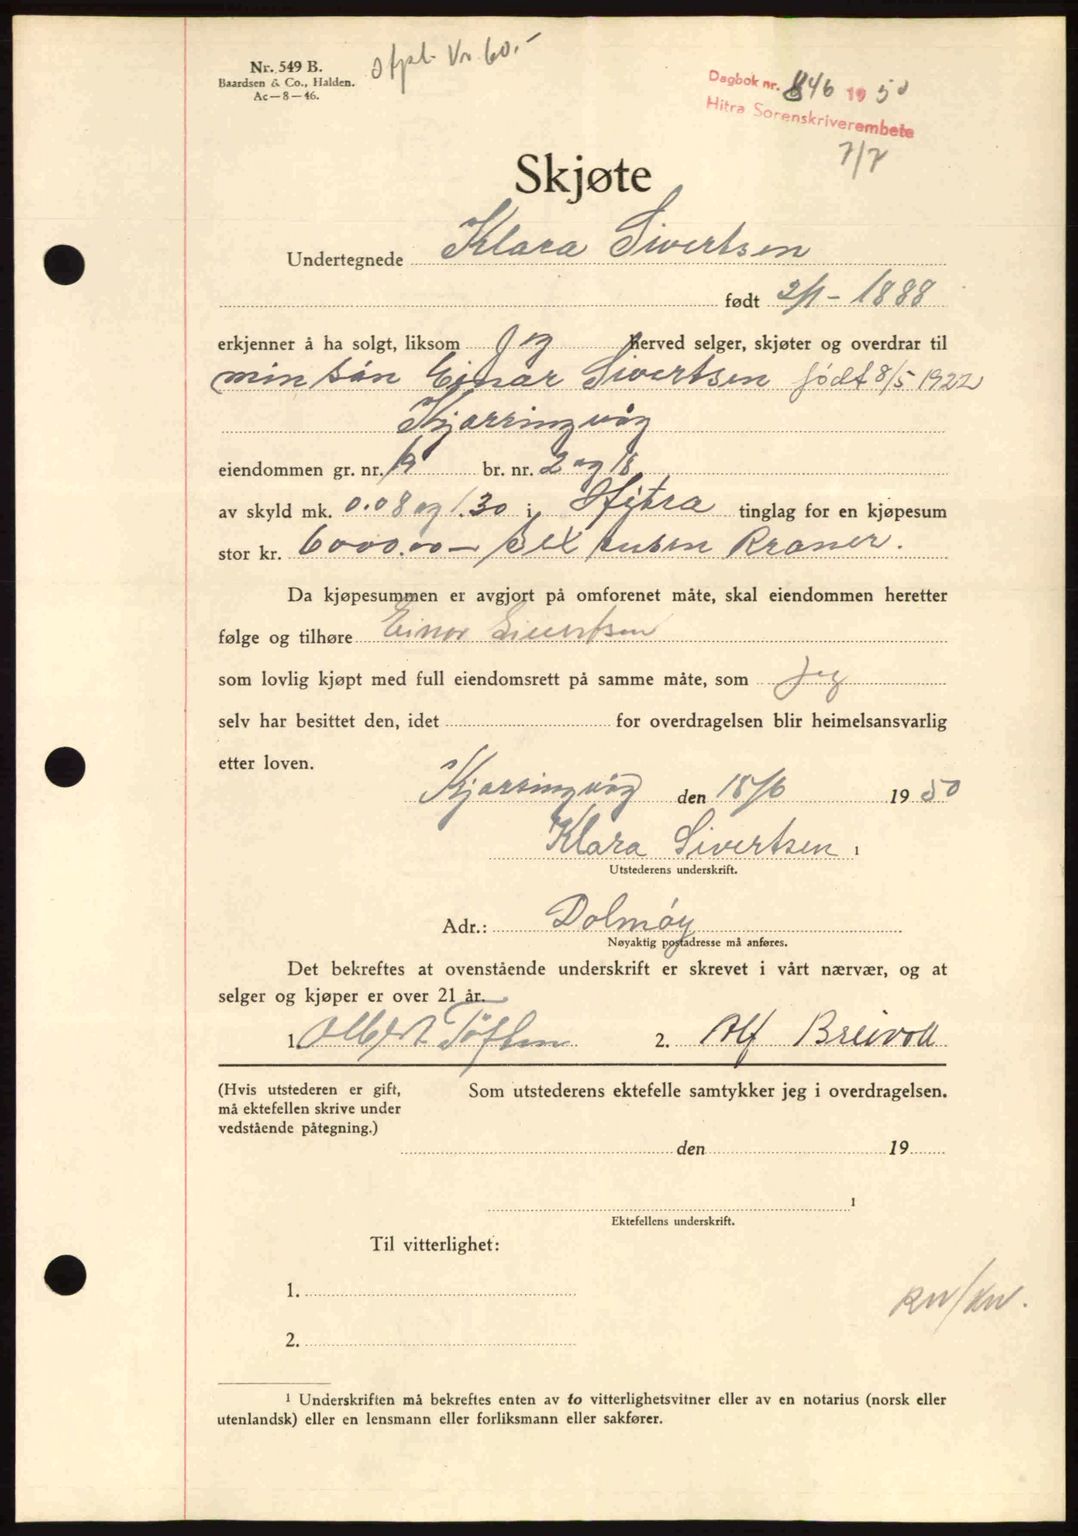 Nr. 549 B.
Baardsen & Co., Halden.
Ac—8—46.
Kr. 60.-
Dagbok nr. 846 1950
Hitra Sorenskriverembete
7/7
Skjøte
Undertegnede Klara Sivertsen
født 2/1 - 1888
erkjenner å ha solgt, liksom Jeg herved selger, skjøter og overdrar til
min sön Einar Sivertsen født 8/5 1922
Kjørringvåg
eiendommen gr. nr. 19 br. nr. 2 og 18
av skyld mk. 0.08 og 1.30 i Hitra tinglag for en kjøpesum
stor kr. 6000.00 — Sex tusen Kroner.
Da kjøpesummen er avgjort på omforenet måte, skal eiendommen heretter
følge og tilhøre Einar Sivertsen
som lovlig kjøpt med full eiendomsrett på samme måte, som jeg
selv har besittet den, idet for overdragelsen blir heimelsansvarlig
etter loven.
Kjørringvåg den 18/6 1950
Klara Sivertsen 1
Utstederens underskrift.
Adr.: Dolmøy
Nøyaktig postadresse må anføres.
Det bekreftes at ovenstående underskrift er skrevet i vårt nærvær, og at
selger og kjøper er over 21 år.
1. Albert 2. Alf Breivoll
(Hvis utstederen er gift, Som utstederens ektefelle samtykker jeg i overdragelsen.
må ektefellen skrive under
vedstående påtegning.)
den 19
1
Ektefellens underskrift.
Til vitterlighet:
1.
2.
KW/KW.
1 Underskriften må bekreftes enten av to vitterlighetsvitner eller av en notarius (norsk eller
utenlandsk) eller en lensmann eller forliksmann eller sakfører.